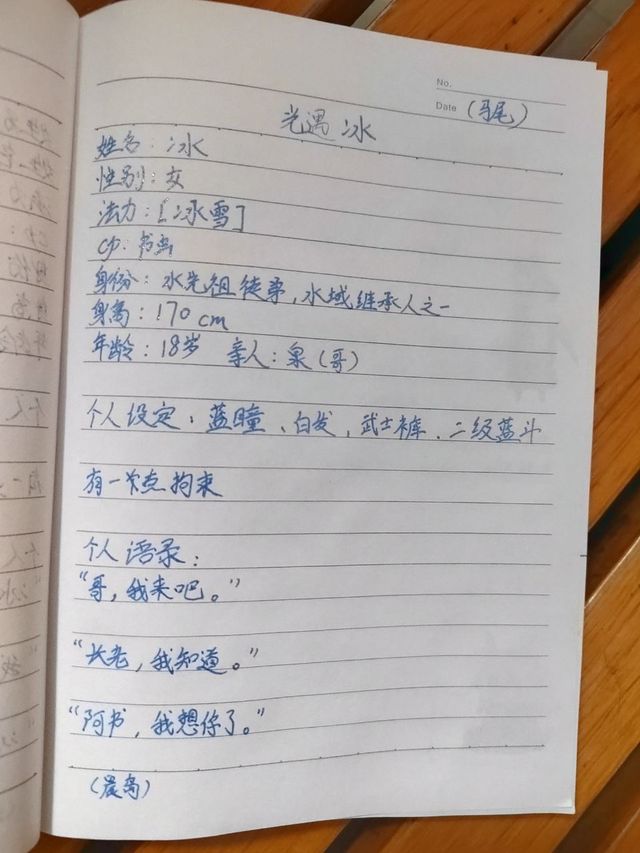 No.
Date (马尾)
光遇 冰
姓名：冰
性别：女
法力：[冰雪]
cp：书
身份：水先祖徒弟，水域继承人之一
身高：170cm
年龄：18岁 亲人：泉(哥)
个人设定：蓝瞳、白发，武士裤、二级蓝斗
有一点拘束
个人语录：
“哥，我来吧。”
“长老，我知道。”
“阿书，我想你了。”
(晨岛)